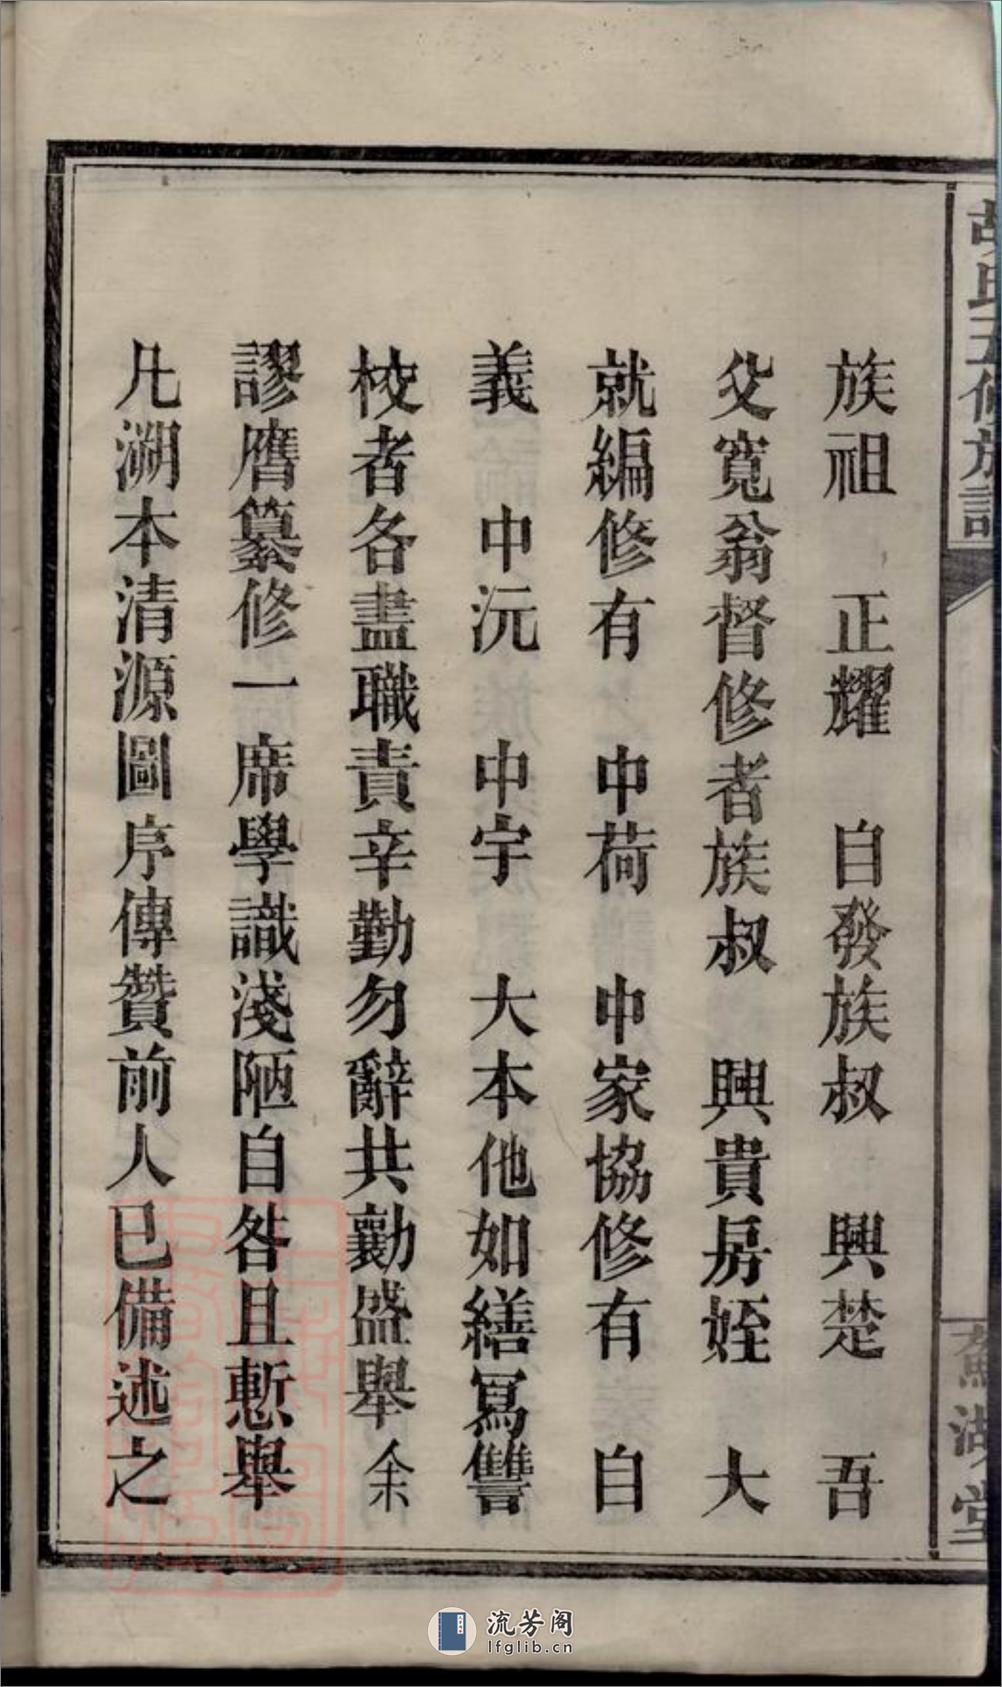 胡氏五修族譜
蘇湖堂
族祖　正耀　自發族叔　興楚　吾
父寬翁督修者族叔　興貴房姪　大
就編修有　中荷　中家協修有　自
義　中沅　中宇　大本他如繕寫讐
校者各盡職責辛勤勿辭共勷盛舉余
謬膺纂修一席學識淺陋自咎且慙舉
凡溯本清源圖序傳贊前人已備述之
流芳阁
lfglib.cn